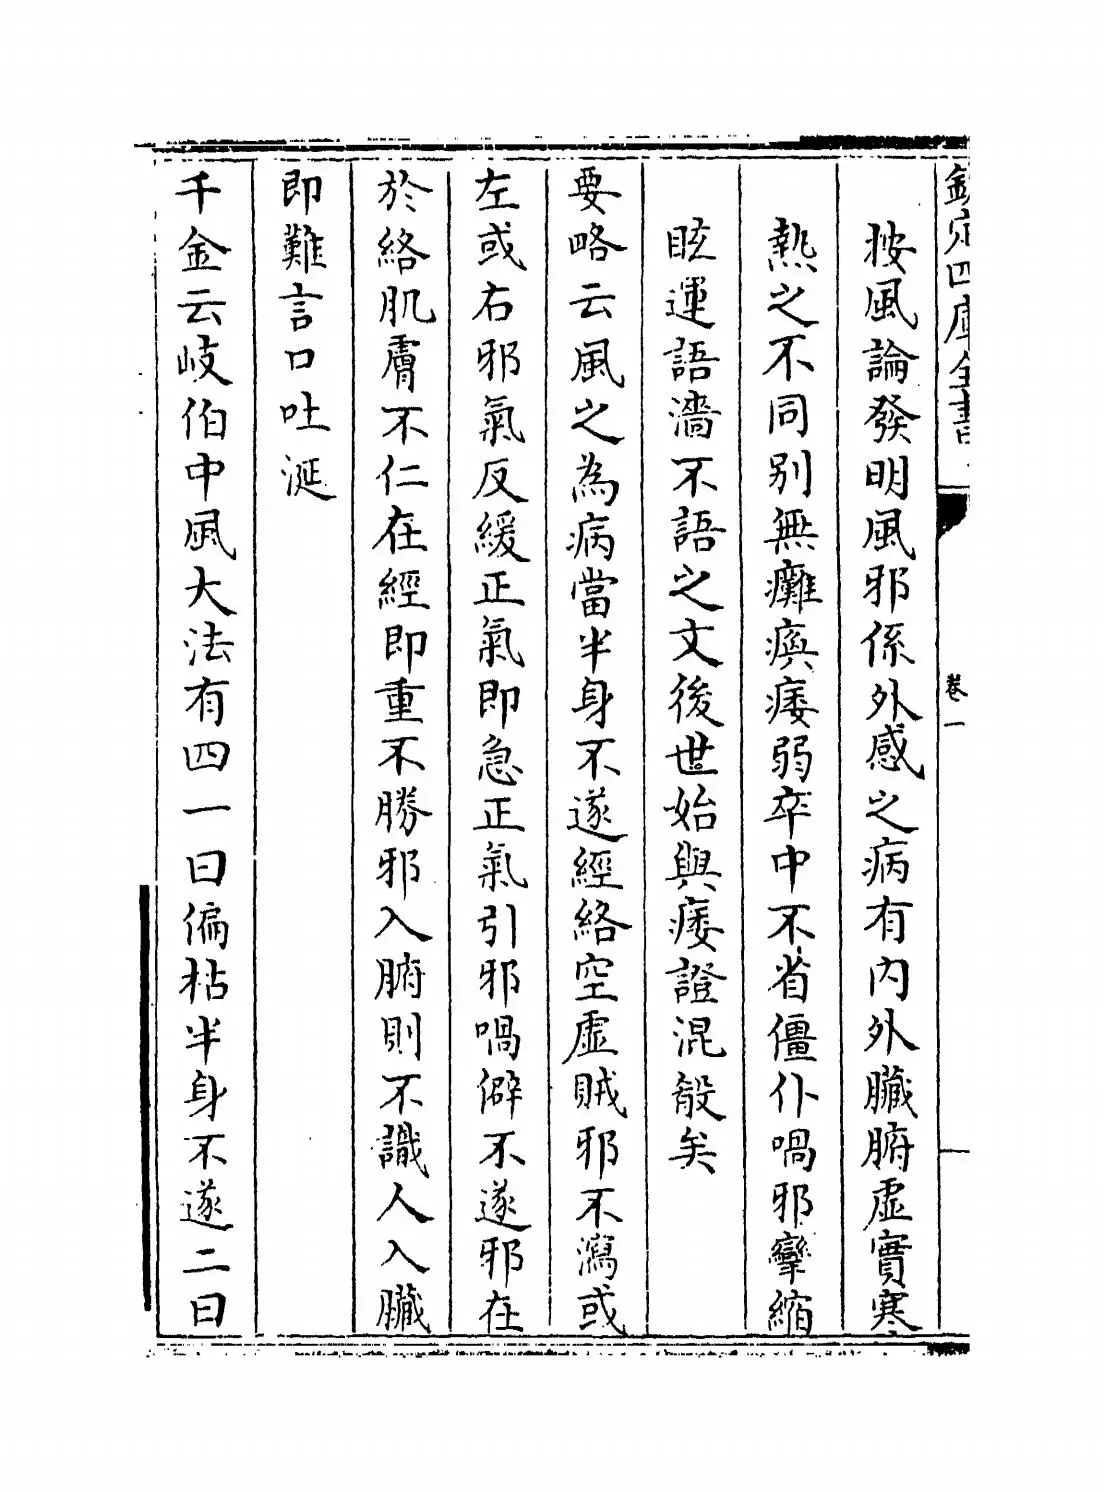 欽定四庫全書
卷一
按風論發明風邪係外感之病有内外臟腑虛實寒
熱之不同别無癱瘓痿弱卒中不省僵仆喎邪攣縮
眩運語濇不語之文後世始與痿證混殽矣
要略云風之為病當半身不遂經絡空虛賊邪不瀉或
左或右邪氣反緩正氣即急正氣引邪喎僻不遂邪在
於絡肌膚不仁在經即重不勝邪入腑則不識人入臟
即難言口吐涎
千金云岐伯中風大法有四一曰偏枯半身不遂二曰